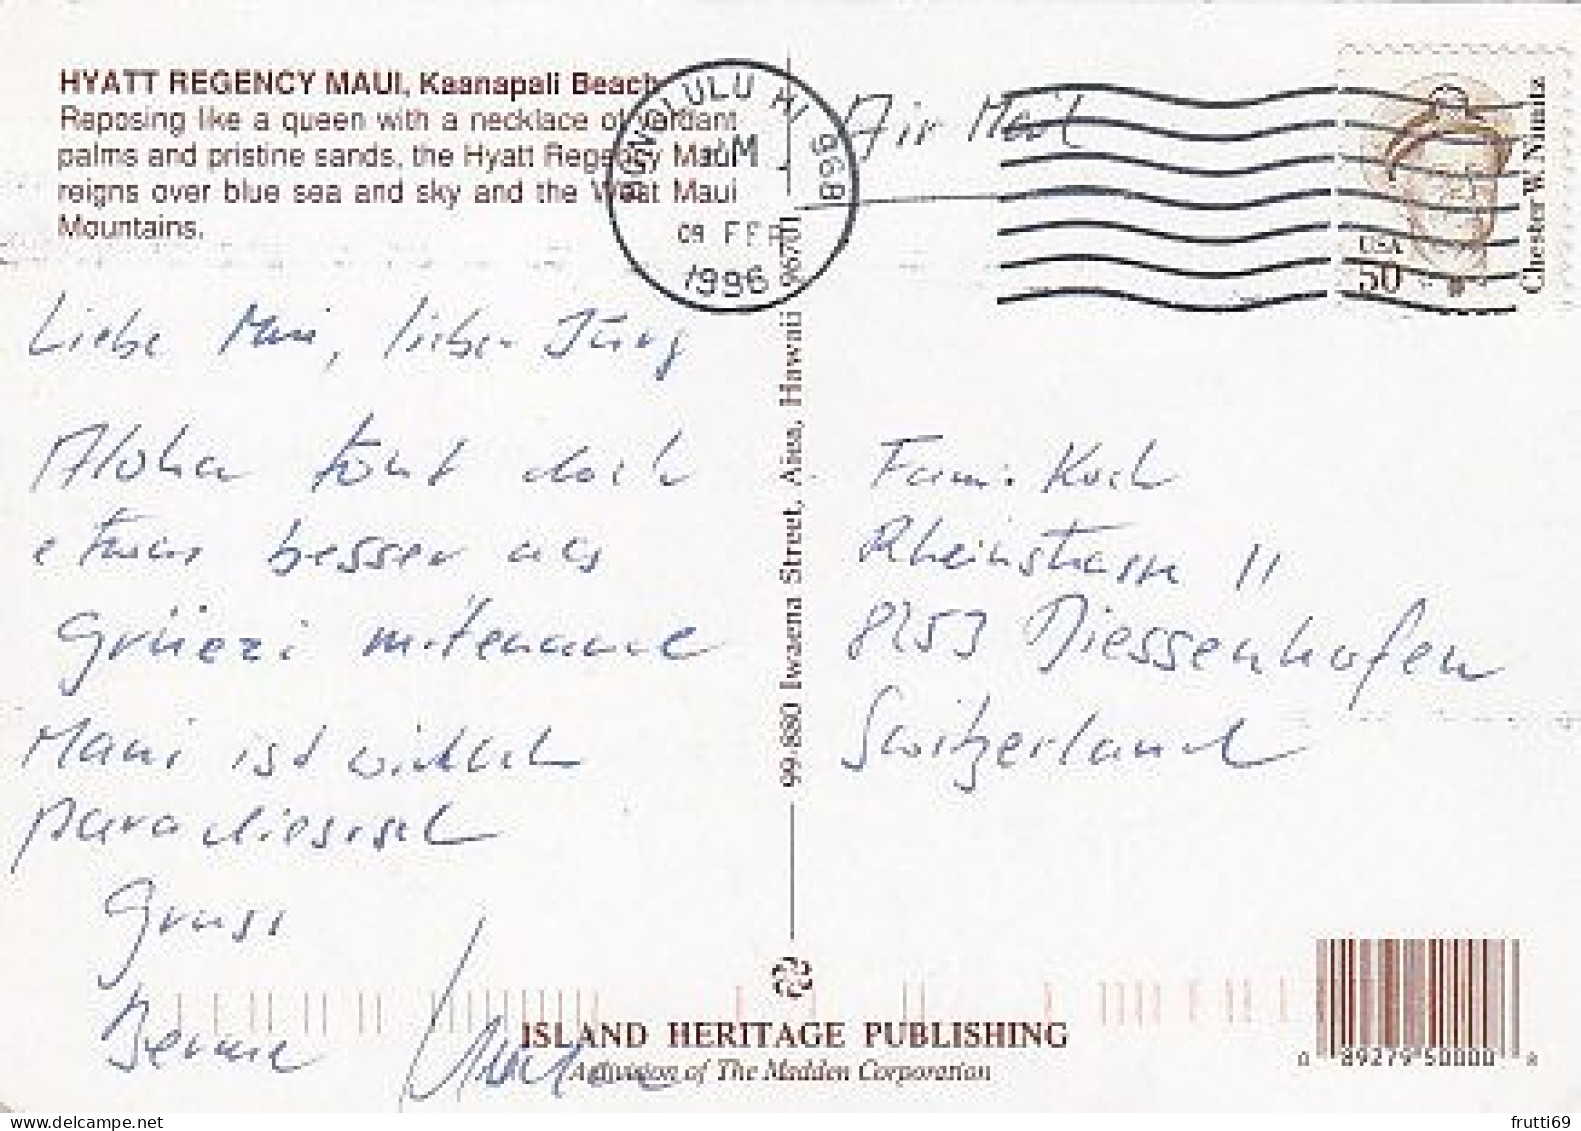 HYATT REGENCY MAUI, Kaanapali Beach
Reposing like a queen with a necklace of verdant
palms and pristine sands, the Hyatt Regency Maui
reigns over blue sea and sky and the West Maui
Mountains.
HONOLULU HI 968
PM
09 FEB
1996
Air Mail
USA
50
Chester W. Nimitz
Liebe Mui, lieber Jürg
Aloha tönt doch
etwas besser als
Grüezi mitenand
Maui ist wirklich
paradiesisch
Gruss
Fam. Koch
Rheinstrasse 11
8253 Diessenhofen
Switzerland
99-880 Iwaena Street, Aiea, Hawaii 96701
ISLAND HERITAGE PUBLISHING
A division of The Madden Corporation
0 89279 50000 8
frutti69